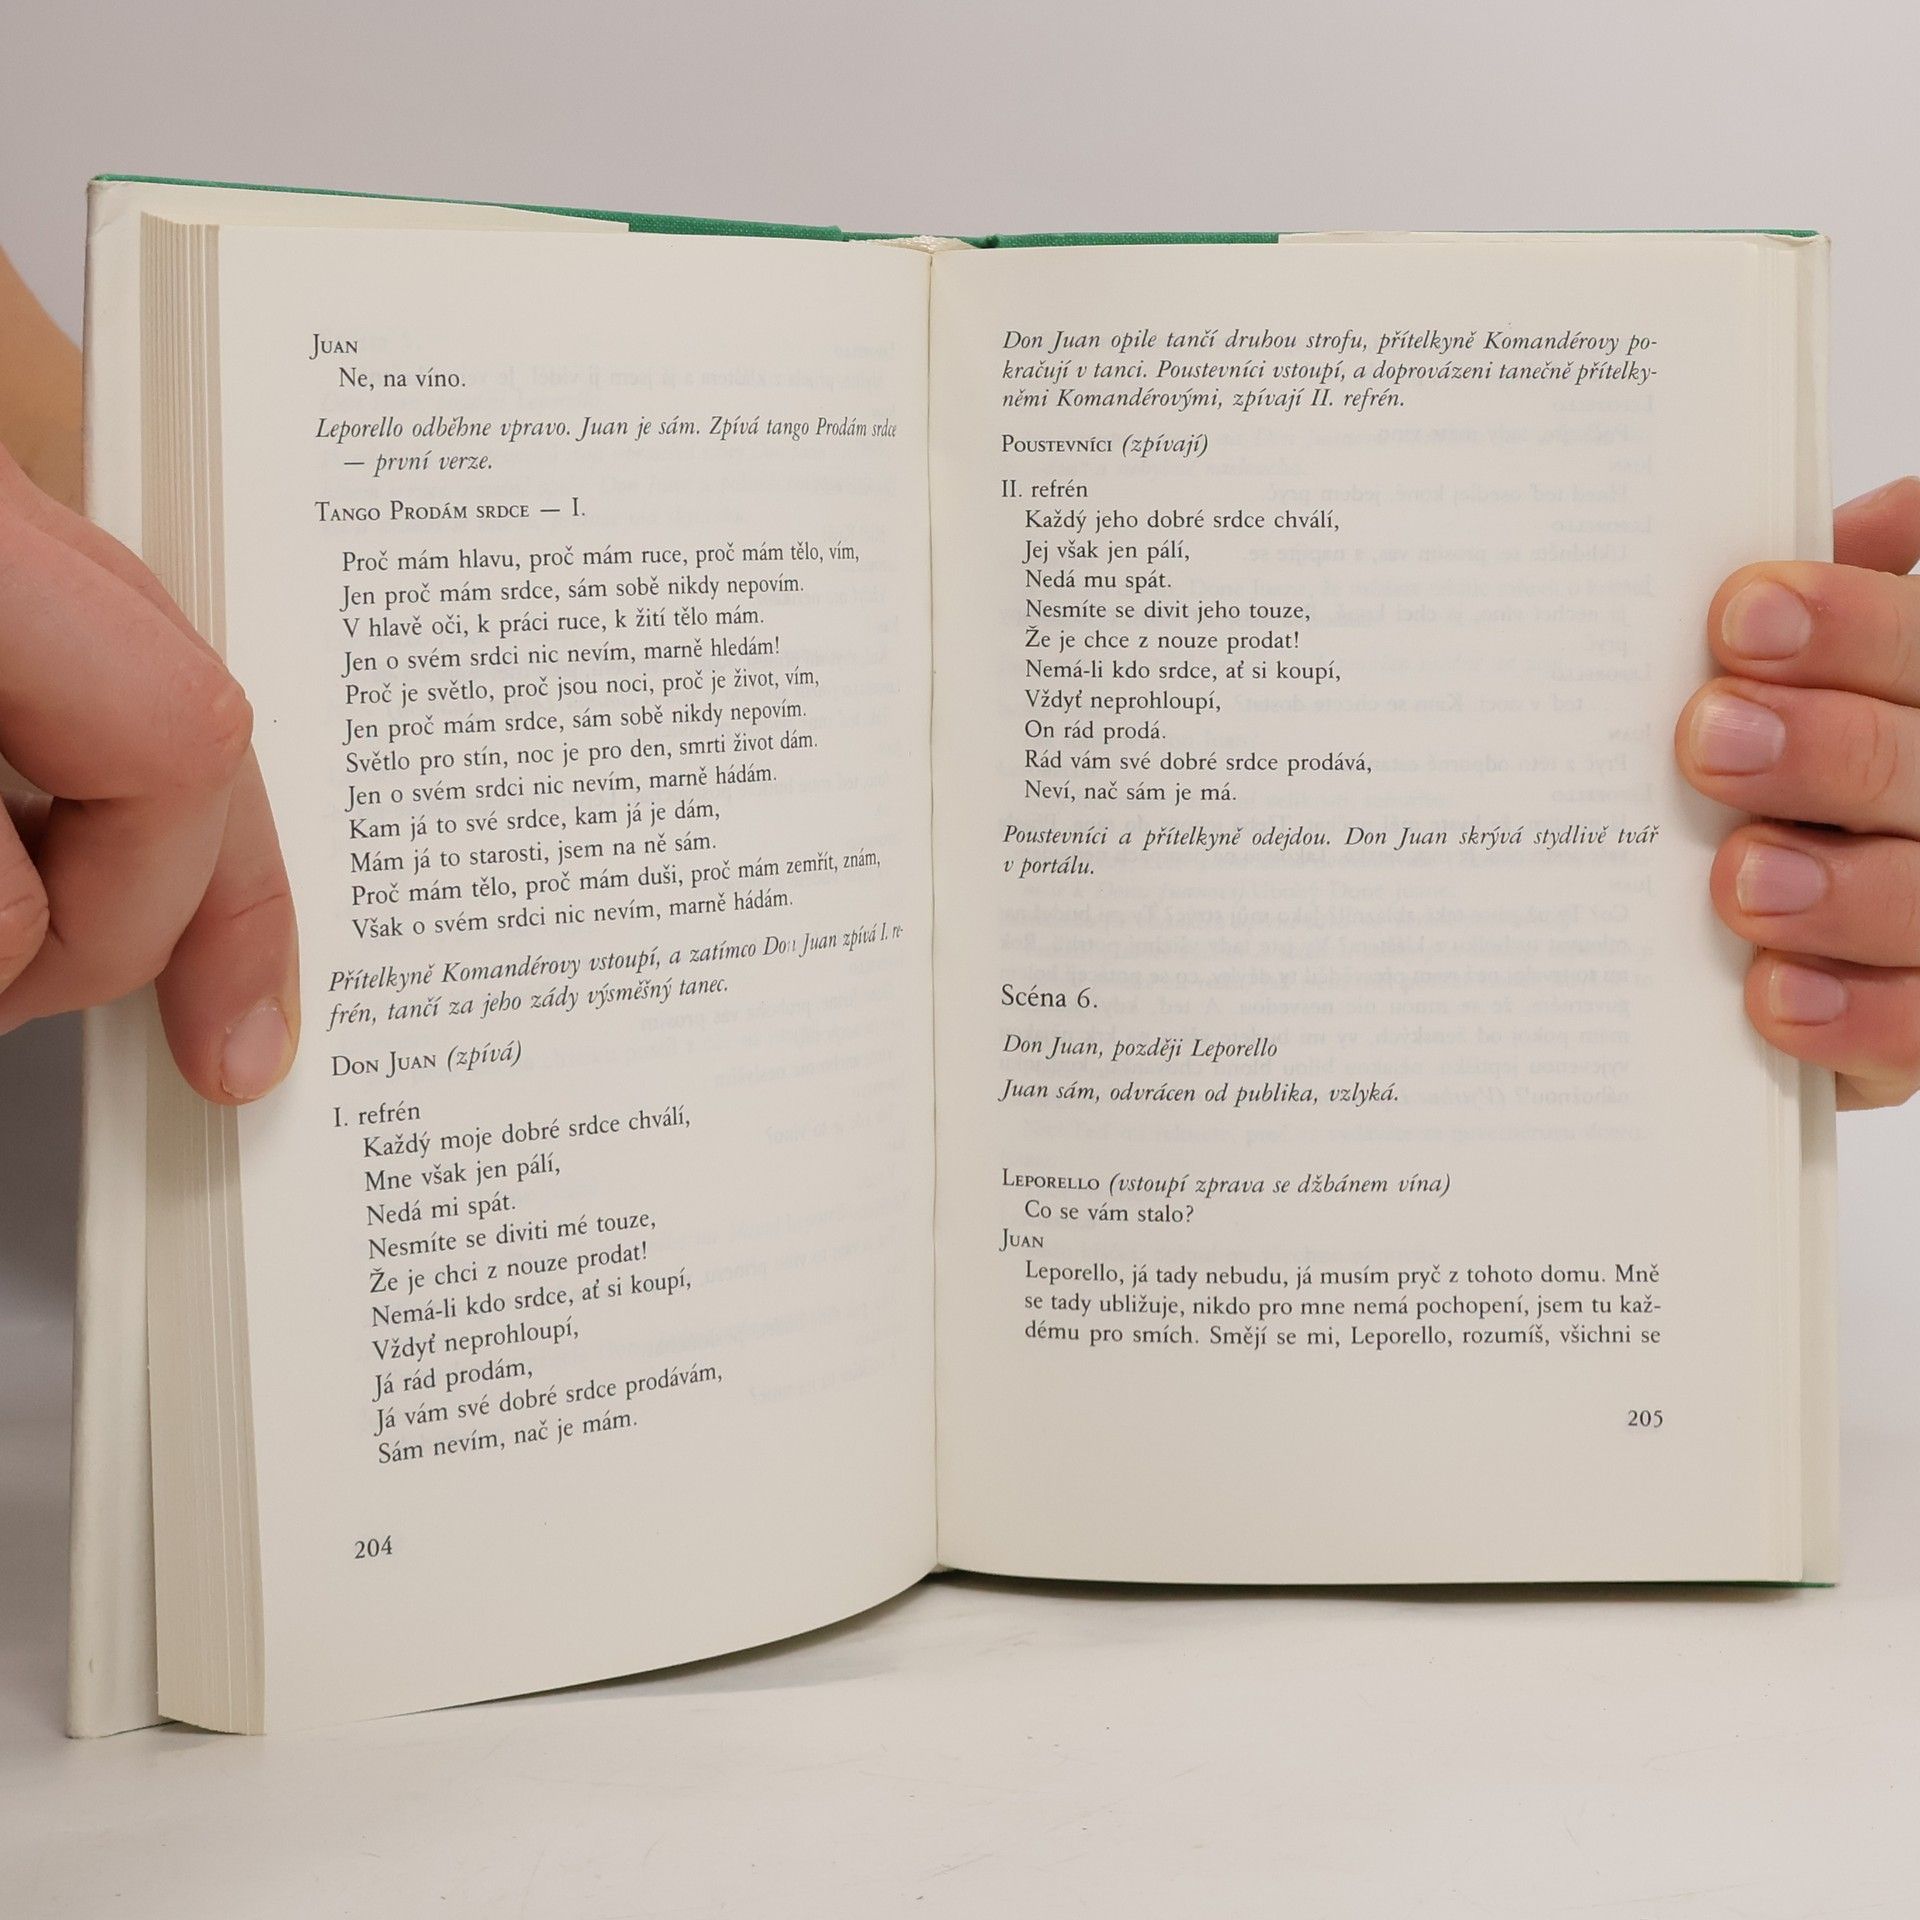 Juan
Ne, na víno.
Leporello odběhne vpravo. Juan je sám. Zpívá tango Prodám srdce
— první verze.
Tango Prodám srdce — I.
Proč mám hlavu, proč mám ruce, proč mám tělo, vím,
Jen proč mám srdce, sám sobě nikdy nepovím.
V hlavě oči, k práci ruce, k žití tělo mám.
Jen o svém srdci nic nevím, marně hledám!
Proč je světlo, proč jsou noci, proč je život, vím,
Jen proč mám srdce, sám sobě nikdy nepovím.
Světlo pro stín, noc je pro den, smrti život dám.
Jen o svém srdci nic nevím, marně hádám.
Kam já to své srdce, kam já je dám,
Mám já to starosti, jsem na ně sám.
Proč mám tělo, proč mám duši, proč mám zemřít, znám,
Však o svém srdci nic nevím, marně hádám.
Přítelkyně Komandérovy vstoupí, a zatímco Don Juan zpívá I. re-
frén, tančí za jeho zády výsměšný tanec.
Don Juan (zpívá)
I. refrén
Každý moje dobré srdce chválí,
Mne však jen pálí,
Nedá mi spát.
Nesmíte se diviti mé touze,
Že je chci z nouze prodat!
Nemá-li kdo srdce, ať si koupí,
Vždyť neprohloupí,
Já rád prodám,
Já vám své dobré srdce prodávám,
Sám nevím, nač je mám.
204
Don Juan opile tančí druhou strofu, přítelkyně Komandérovy po-
kračují v tanci. Poustevníci vstoupí, a doprovázeni tanečně přítelky-
němi Komandérovými, zpívají II. refrén.
Poustevníci (zpívají)
II. refrén
Každý jeho dobré srdce chválí,
Jej však jen pálí,
Nedá mu spát.
Nesmíte se divit jeho touze,
Že je chce z nouze prodat!
Nemá-li kdo srdce, ať si koupí,
Vždyť neprohloupí,
On rád prodá.
Rád vám své dobré srdce prodává,
Neví, nač sám je má.
Poustevníci a přítelkyně odejdou. Don Juan skrývá stydlivě tvář
v portálu.
Scéna 6.
Don Juan, později Leporello
Juan sám, odvrácen od publika, vzlyká.
Leporello (vstoupí zprava se džbánem vína)
Co se vám stalo?
Juan
Leporello, já tady nebudu, já musím pryč z tohoto domu. Mně
se tady ubližuje, nikdo pro mne nemá pochopení, jsem tu kaž-
dému pro smích. Smějí se mi, Leporello, rozumíš, všichni se
205